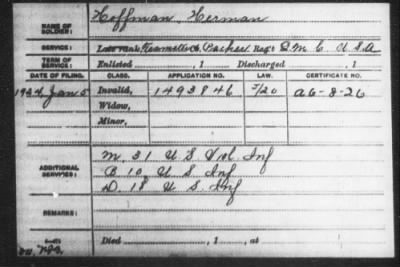 NAME OF SOLDIER: Hoffman, Herman
SERVICE: Late rank, Teamster & Packer Regt Q M C U S A
TERM OF SERVICE: Enlisted , 1 Discharged , 1
DATE OF FILING. CLASS. APPLICATION NO. LAW. CERTIFICATE NO.
1924 Jan 5 Invalid, 1493846 /20 A6-8-26
Widow,
Minor,
ADDITIONAL SERVICES: M. 31 U S Vol. Inf
B 10 U S Inf
D. 18 U S Inf
REMARKS:
Died , 1 , at